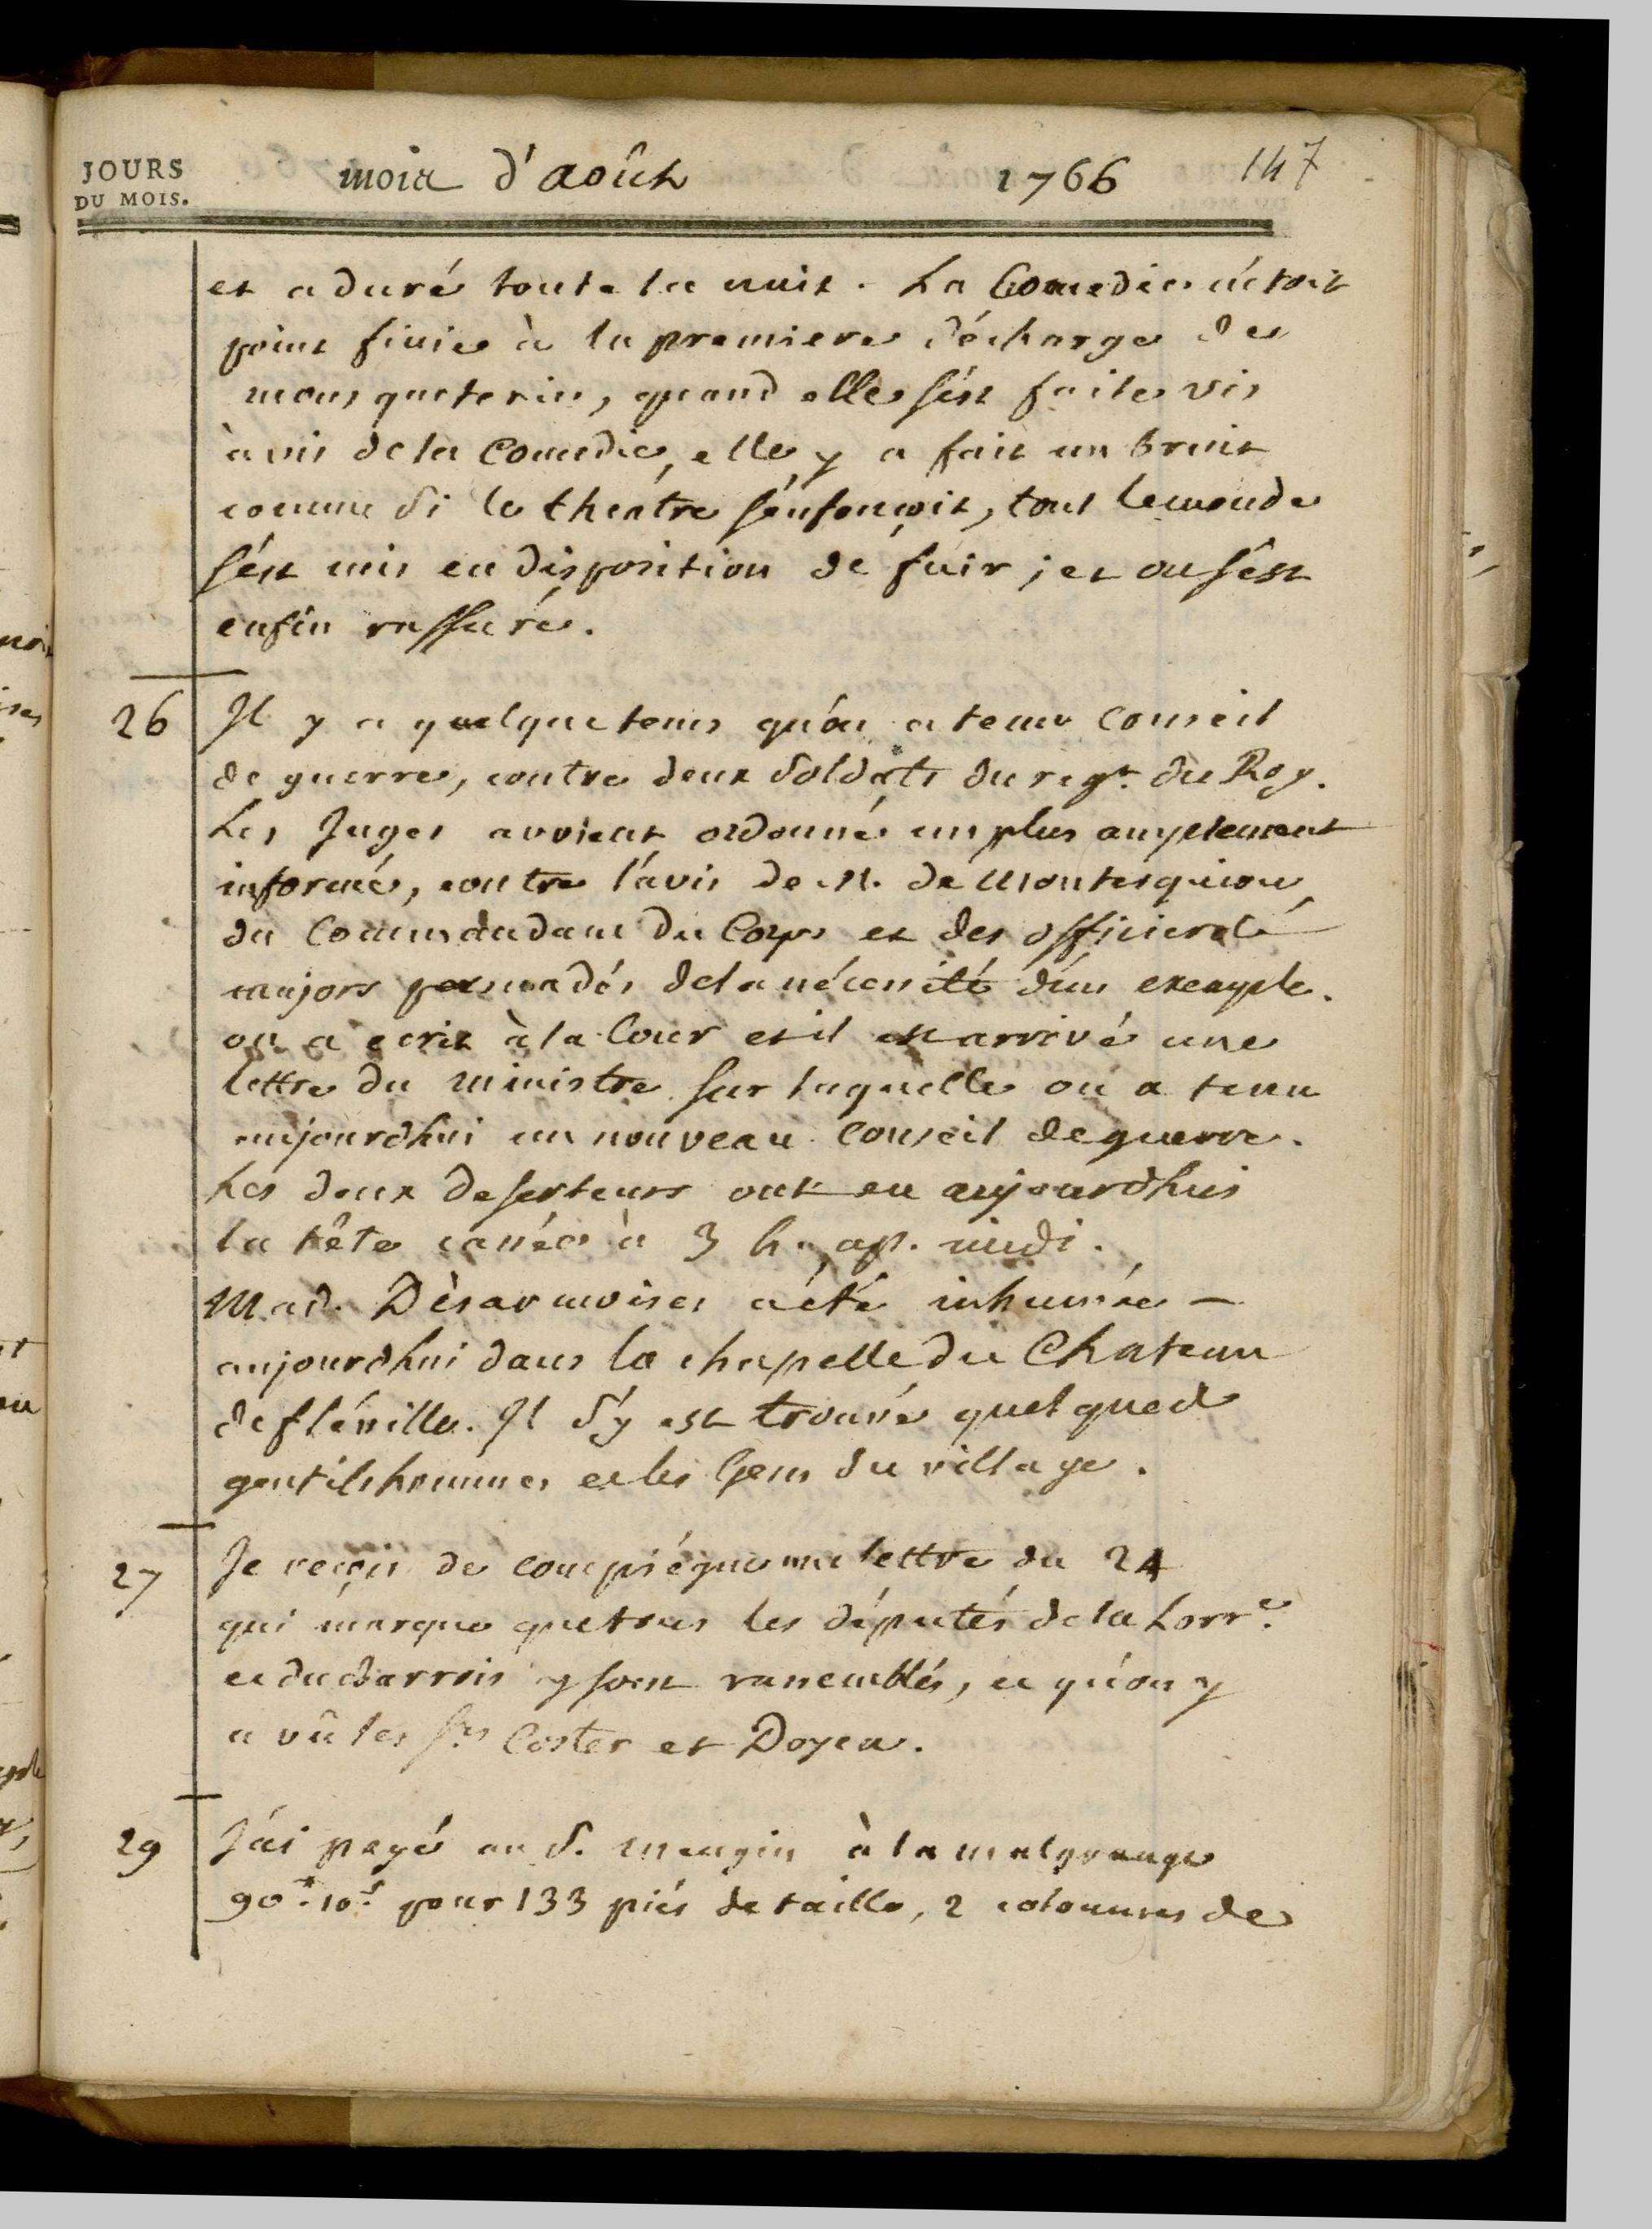 JOURS
DU MOIS.
mois d'août 1766 147
et a duré toute la nuit. La Comedie n'étoit
point finie à la premiere décharge de
mousqueterie, quand elle s'est faite vis
à vis de la Comedie, elle y a fait un bruit
comme si le théatre s'enfonçoit, tout le monde
s'est mis en disposition de fuir; et on s'est
enfin rassuré.
26 Il y a quelque tems qu'on a tenu Conseil
de guerre, contre deux Soldats du regt. du Roy.
Les Juges avoient ordonné un plus amplement
informé, contre l'avis de M. de Montesquiou,
du Commandant du Corps et des officiers
majors persuadés de la nécessité d'un exemple.
on a ecrit à la Cour et il est arrivé une
lettre du ministre sur laquelle on a tenu
aujourdhui un nouveau Conseil de guerre.
Les deux deserteurs ont eu aujourdhui
la tête cassée à 3 h. ap. midi.
Mad. Désarmoises a été inhumée -
aujourdhui dans la chapelle du Chateau
de fléville. Il s'y est trouvé quelques
gentilshommes et les Gens du village.
27 Je reçois de compiégne une lettre du 24
qui marque que tous les députés de la Lorre.
et du Barrois y sont rassemblés, et qu'on y
a vû les Srs Coster et Doyen.
29 J'ai payé au S. Mengin à la malgrange
90# 10s pour 133 piés de taille, 2 colonnes de